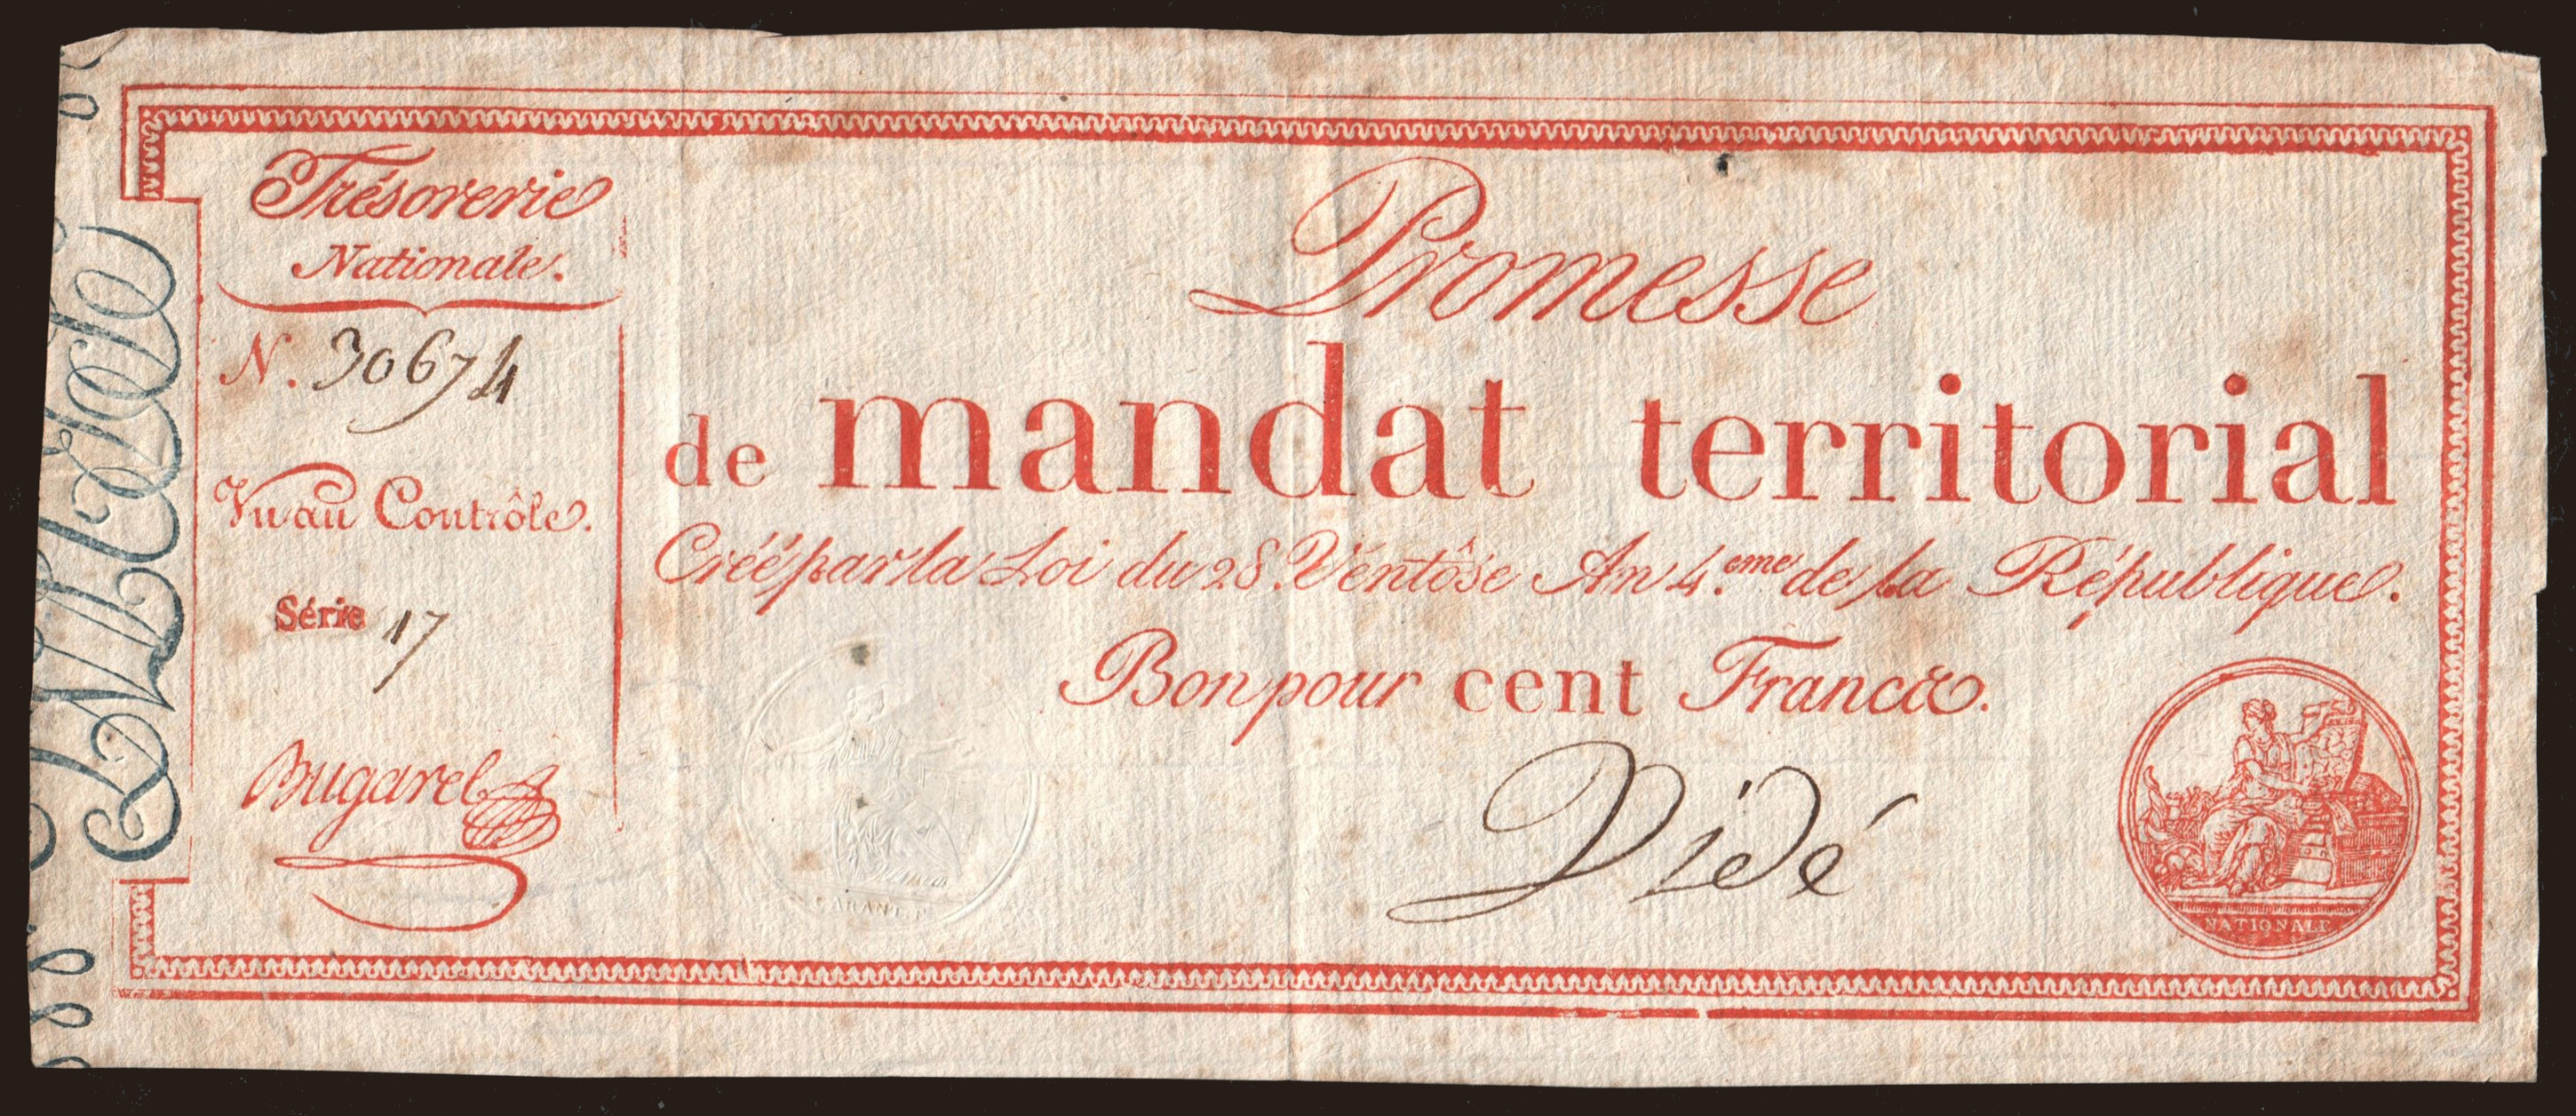 Trésorerie
Nationale.
N. 30674
Vu au Contrôle.
Série 17
Bugarel
Promesse
de mandat territorial
Créé par la Loi du 28. Ventôse An 4.eme de la République.
Bon pour cent Francs.
Didé
NATIONALE